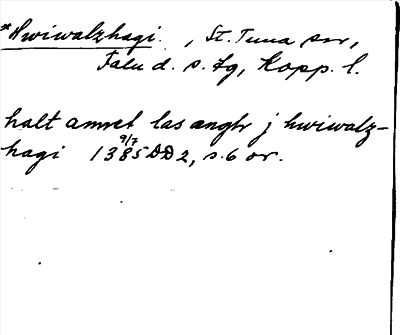 *Hwiwalzhagi , St. Tuna sn,
Falu d. s. lg, Kopp. l.
halt annet las ængh j hwiwalz-
hagi 1385 9/7 DD 2, s. 6 or.